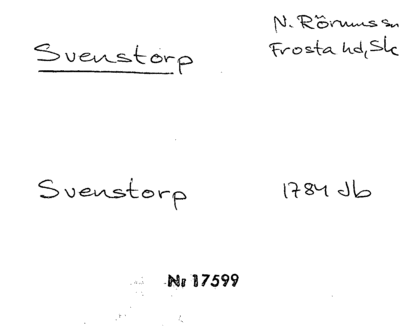 Svenstorp
N. Rörums sn
Frosta hd, Sk
Svenstorp 1784 Jb
Nr 17599